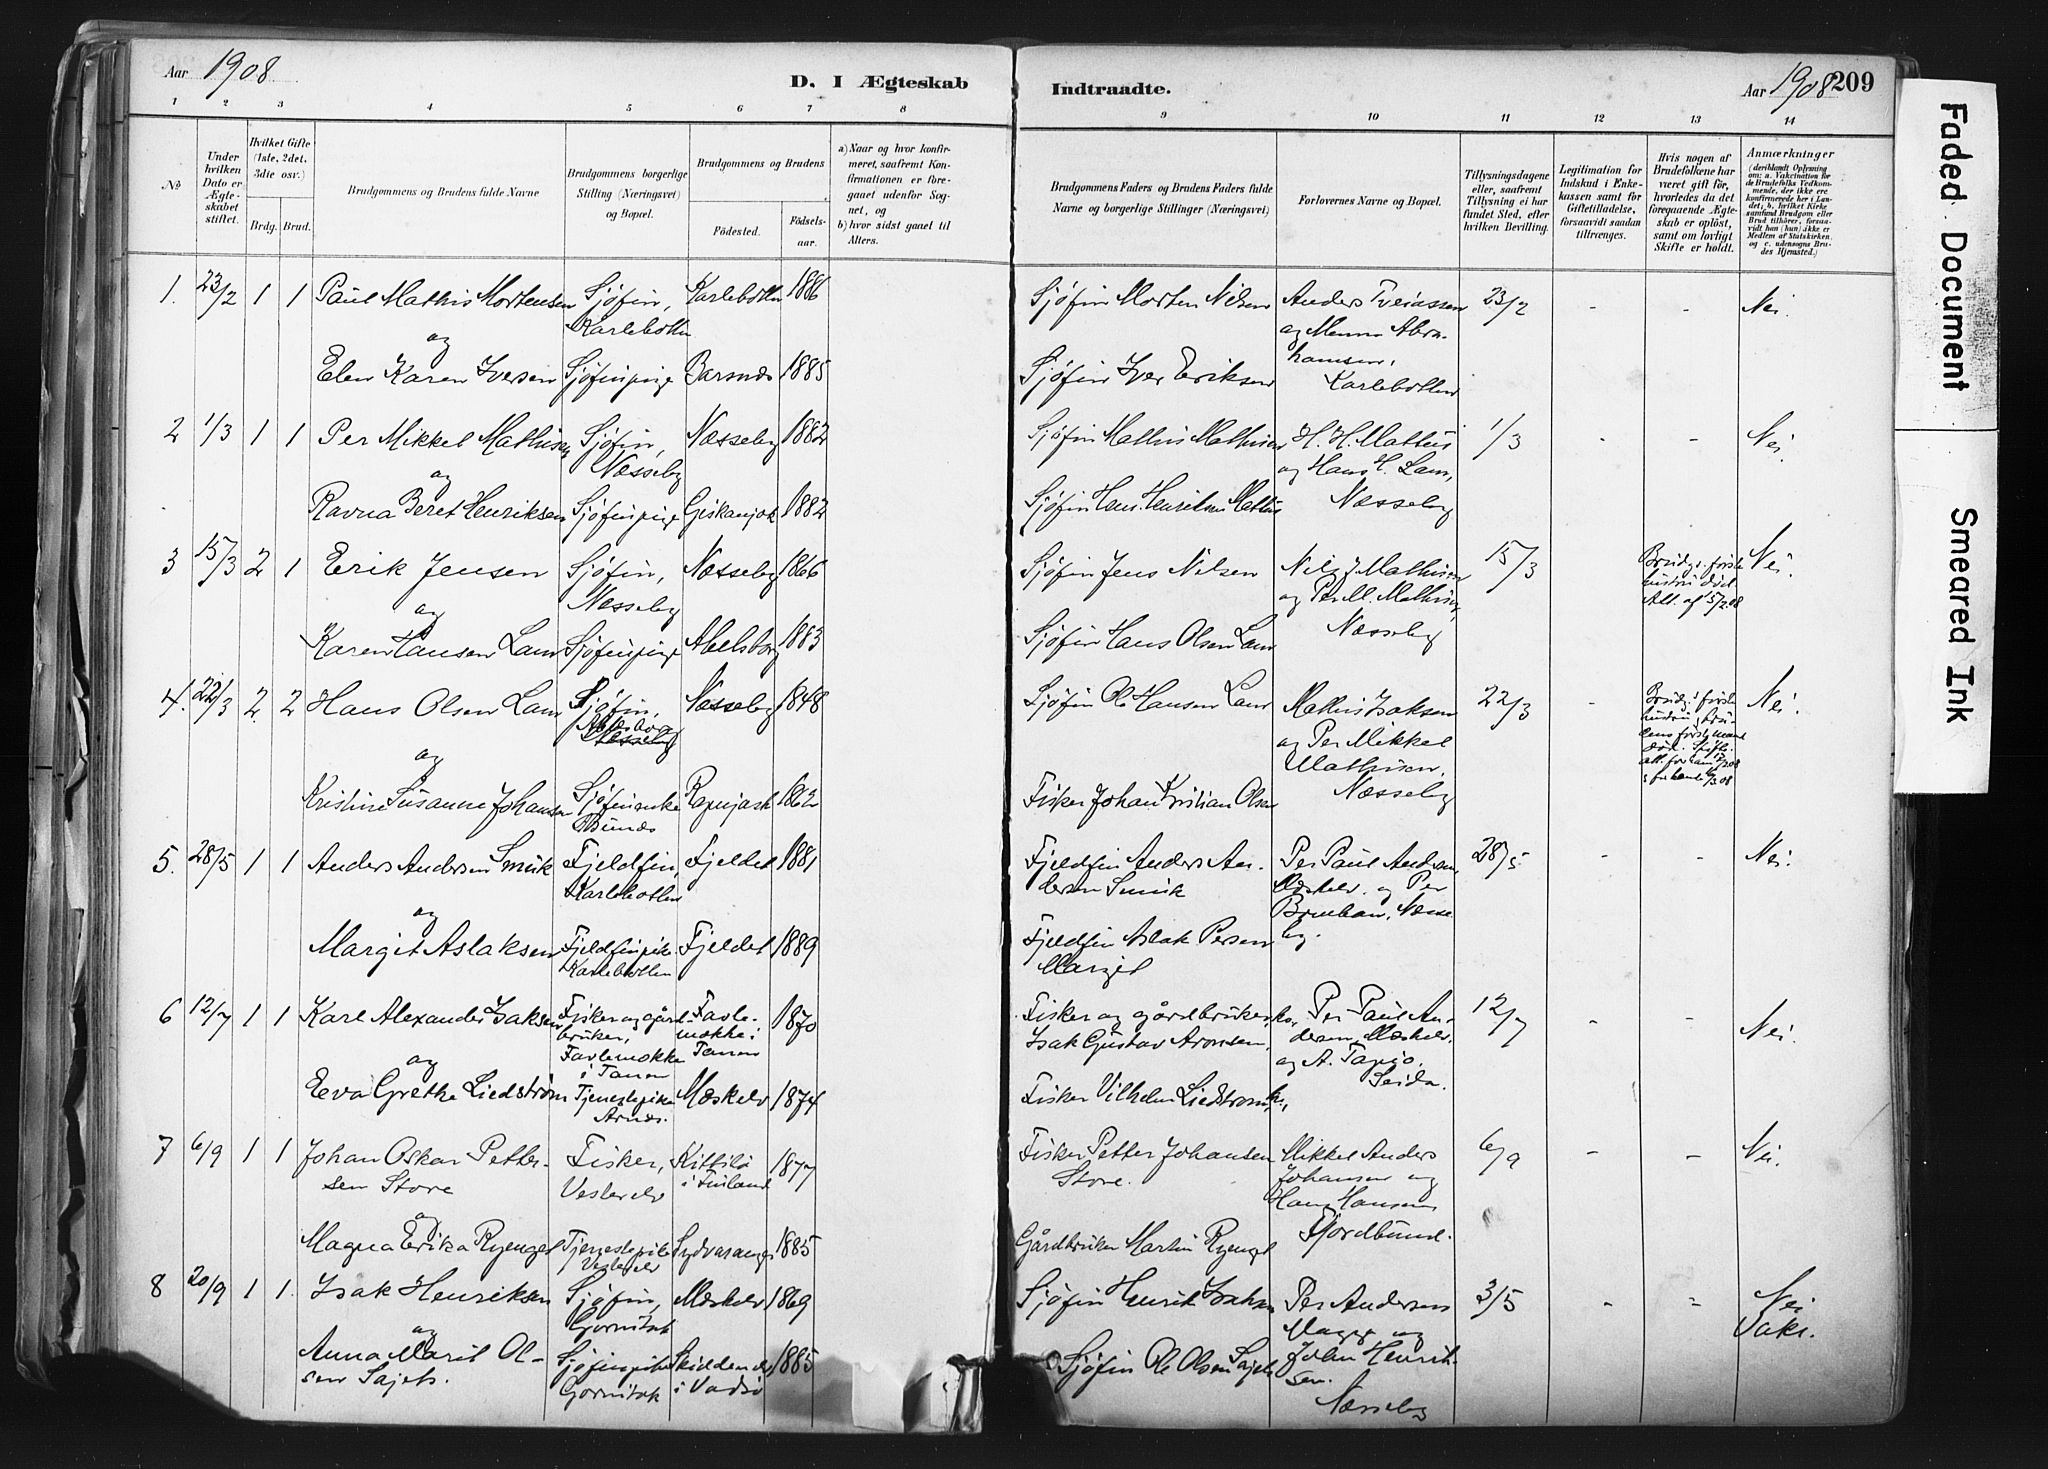 Aar 1908
D. I Ægteskab
Indtraadte.
Aar 1908
209
1 2 3 4 5 6 7 8
9 10 11 12 13 14
No
Under hvilken Dato er Ægteskabet stiftet.
Hvilket Gifte (1ste, 2det, 3die osv.)
Brdg. Brud.
Brudgommens og Brudens fulde Navne
Brudgommens borgerlige Stilling (Næringsvei) og Bopæl.
Brudgommens og Brudens
Fødested.
Fødselsaar.
a) Naar og hvor konfirmeret, saafremt Konfirmationen er foregaaet udenfor Sognet, og
b) hvor sidst gaaet til Alters.
Brudgommens Faders og Brudens Faders fulde Navne og borgerlige Stillinger (Næringsvei)
Forlovernes Navne og Bopæl.
Tillysningsdagene eller, saafremt Tillysning ei har fundet Sted, efter hvilken Bevilling.
Legitimation for Indskud i Enkekassen samt for Giftetilladelse, forsaavidt saadan tiltrænges.
Hvis nogen af Brudefolkene har været gift før, hvorledes da det foregaaende Ægteskab er opløst, samt om lovligt Skifte er holdt.
Anmærkninger
(deriblandt Oplysning om: a. Vakcination for de Brudefolks Vedkommende, der ikke ere konfirmerede her i Landet; b. hvilket Kirkesamfund Brudgom eller Brud tilhører, forsaavidt han (hun) ikke er Medlem af Statskirken, og c. udensogns Brudes Hjemsted.)
1. 23/2 1 1 Paul Mathis Mortensen Sjøfin, Karlebotn Karlebotten 1886
og
Elen Karen Iversen Sjøfinpige Barsnæs 1885
Sjøfin Morten Nilsen
Sjøfin Iver Eriksen
Anders
og Abrahamsen,
Karlebotten
23/2 - - Nei.
2 1/3 1 1 Per Mikkel Mathisen Sjøfin, Næsseby Næsseby 1882
og
Ravna Beret Henriksen Sjøfinpige 1882
Sjøfin Mathis Mathisen
Sjøfin Hans Henriksen
H. H. Mathis
og Hans H. Lam,
Næsseby
1/3 - - Nei.
3 15/3 2 1 Erik Jensen Sjøfin, Næsseby Næsseby 1866
og
Karen Hansen Lam Sjøfinpige Abelsborg 1883
Sjøfin Jens Nilsen
Sjøfin Hans Olsen Lam
Nils J. Mathisen
og Per M. Mathisen,
Næsseby
15/3
Brudg. første
hustru død.
Att. af 15/2 08
Nei.
4. 22/3 2. 2 Hans Olsen Lam Sjøfin, Abelsborg Næsseby Næsseby 1848
og
Kristine Susanne Johansen Sjøfinenke Bunæs 1862
Sjøfin Ole Hansen Lam
Fisker Johan Kristian Olsen
Mathis Isaksen
og Per Mikkel
Mathisen,
Næsseby
22/3 -
Brudg. første
hustru,
første mand
død.
Nei.
5. 28/5 1 1 Anders Andersen Smuk Fjeldfin, Karlebotten Fjeldet 1881
og
Margit Aslaksen Fjeldfinpike Karlebotten Fjeldet 1889
Fjeldfin Anders Andersen Smuk
Fjeldfin Aslak Persen
Per Paul Andersen,
Mæskelv. og Per
Næsseby.
28/5 - - Nei.
6 12/7 1 1 Karl Alexander Isaksen Fisker og gårdbruker, Favlemokke i Tanen Favlemokke i Tanen 1870
og
Eeva Grethe Liedström Tjenestepike Mæskelv 1874
Fisker og gårdbruker
Isak Gustav Aronsen,
Fisker Vilhelm Liedstrøm
Per Paul Andersen, Mæskelv.
og A. Tapio,
Seida.
12/7 - - Nei.
7 6/9 1 1 Johan Oskar Pettersen Store Fisker, Vesterelv Kittilä i Finland 1877
og
Magna Erika Ryeng Tjenestepike Vesterelv Sydvaranger 1885
Fisker Petter Johansen
Store.
Gårdbruker Martin Ryeng
Mikkel Anders
Johansen og
Hans Hansen
Fjordbund.
6/9 - - Nei.
8 20/9 1 1. Isak Henriksen Sjøfin, Gornitak Mæskelv 1869
og
Anna Marit Olsen Sajets. Sjøfinpike Gornitak i Vadsø 1885
Sjøfin Henrik Isaksen
Sjøfin Ole Olsen Sajets
Per Andersen
og
John Henriksen.
Næsseby
3/5 - - Nei
Faded Document
Smeared Ink